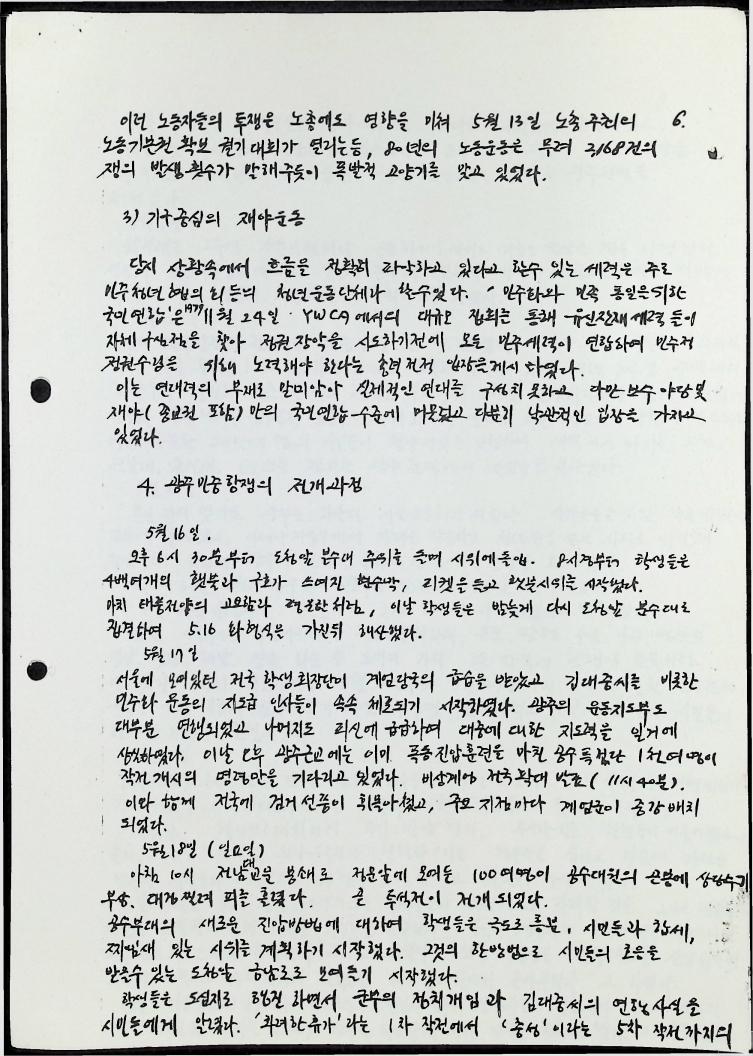 이런 노동자들의 투쟁은 노총에도 영향을 미쳐 5월 13일 노총 주최의 6.
노동기본권 확보 궐기대회가 열리는등, 80년의 노동운동은 무려 2,168건의
쟁의 발생횟수가 말해주듯이 폭발적 고양기를 맞고 있었다.
3) 기구중심의 재야운동
당시 상황속에서 흐름을 정확히 파악하고 있다고 할수 있는 세력은 주로
민주청년협의회등의 청년운동단체라 할수있다. '민주화와 민족 통일을위한
국민연합'은 1979 11월 24일 YWCA에서의 대규모 집회를 통해 유신잔재세력들이
자체구심점을 찾아 정권장악을 시도하기전에 모든 민주세력이 연합하여 민주정
권수립을 위해 노력해야 한다는 출력전적 입장을 제시하였다.
이는 연대력의 부재로 말미암아 실제적인 연대를 구성치못하고 다만 보수야당및
재야(종교권 포함)만의 국민연합 수준에 머물렀고 다분히 낙관적인 입장을 가지고
있었다.
4. 광주민중항쟁의 전개과정
5월 16일.
오후 6시 30분부터 도청앞 분수대 주위를 돌며 시위에 돌입. 8시경부터 학생들은
4백여개의 횃불과 구호가 쓰여진 현수막, 피켓을 들고 횃불시위를 시작했다.
마치 태풍전야의 고요함과 평온한처럼, 이날 학생들은 밤늦게 다시 도청앞 분수대로
집결하여 5.16 화형식을 가진뒤 해산했다.
5월 17일
서울에 모여있던 전국 학생회장단이 계엄당국의 급습을 받았고 김대중씨를 비롯한
민주화 운동의 지도급 인사들이 속속 체포되기 시작하였다. 광주의 운동지도부도
대부분 연행되었고 나머지도 피신에 급급하여 대중에 대한 지도력을 일거에
상실하였다. 이날 오후 광주근교에는 이미 폭동진압훈련을 마친 공수특전단 1천여명이
작전개시의 명령만을 기다리고 있었다. 비상계엄 전국확대 발표(11시 40분).
이와 함께 전국에 검거선풍이 휘몰아쳤고, 주요지점마다 계엄군이 증강 배치
되었다.
5월 18일 (일요일)
아침 10시 전남대교문 봉쇄로 정문앞에 모여든 100여명이 공수대원의 곤봉에 상당수가
부상, 대검찔려 피를 흘렸다. 곧 투석전이 전개되었다.
공수부대의 새로운 진압방법에 대하여 학생들은 극도로 흥분, 시민들과 합세,
짜임새 있는 시위를 계획하기 시작했다. 그것의 한방법으로 시민들의 호응을
받을수 있는 도청앞 금남로로 모여들기 시작했다.
학생들은 도심지로 행진 하면서 군부의 정치개입과 김대중씨의 연행사실을
시민들에게 알렸다. '화려한휴가'라는 1차 작전에서 '충성'이라는 5차 작전까지의